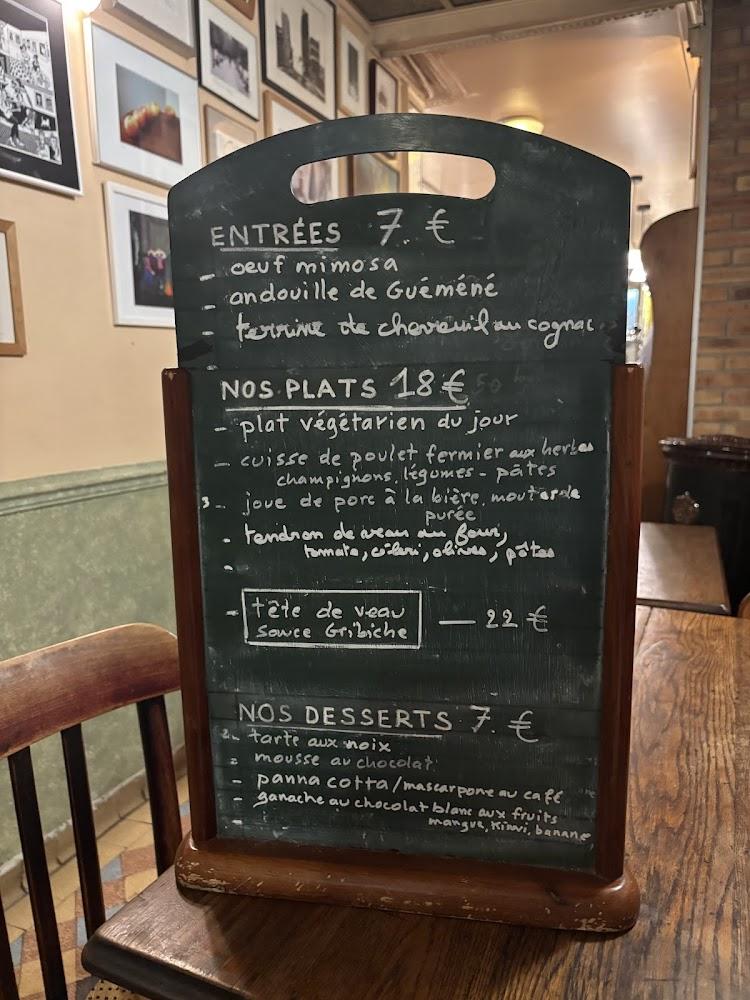 ENTRÉES 7. €
- oeuf mimosa
- andouille de Guéméné
- terrine de chevreuil au cognac
NOS PLATS 18 €
- plat végétarien du jour
- cuisse de poulet fermier aux herbes
champignons, légumes - pâtes
3 - joue de porc à la bière, moutarde
purée
- tendron de veau au four,
tomate, céleri, olives, pâtes
-
- tête de veau — 22 €
sauce Gribiche
NOS DESSERTS 7. €
2 - tarte aux noix
- mousse au chocolat
- panna cotta/mascarpone au café
- ganache au chocolat blanc aux fruits
- mangue, kiwi, banane